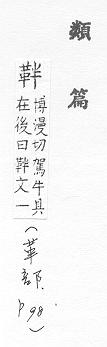 類篇
靽
博漫切駕牛具
在後曰靽文一
(革部. P98.)